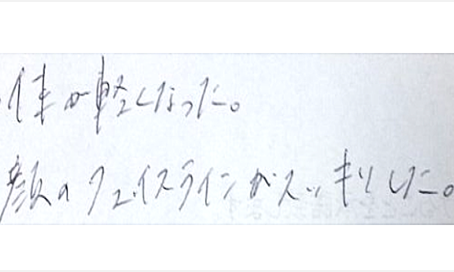 ・体が軽くなった。
顔のフェイスラインがスッキリした。